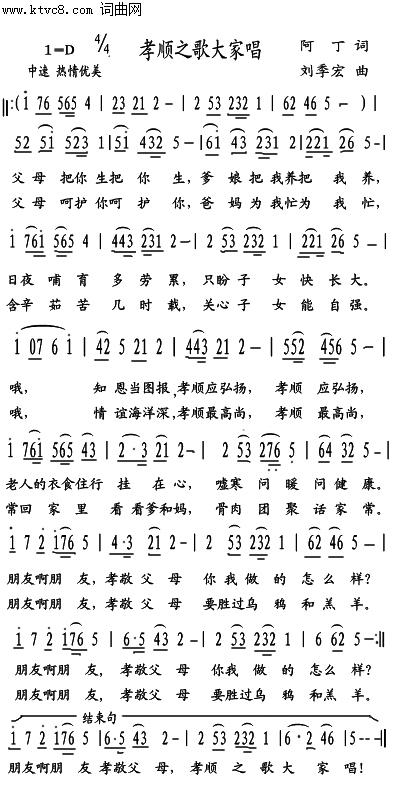 www.ktvc8.com 词曲网
1=D 4/4 孝顺之歌大家唱 阿丁词
中速 热情优美 刘季宏 曲
‖:(i 76 565 4 | 23 21 2 - | 2 53 232 1 | 62 46 5 - )|
52 51 523 1 | 51 431 232 5 - | 61 43 231 2 | 221 26 5 - |
父母 把你生把 你 生,爹 娘把我养把 我 养,
父母 呵护你呵 护 你,爸妈为我忙为 我 忙,
i 761 565 4 | 443 231 2 - | 2 53 232 1 | 221 26 5 - |
日夜 哺 育 多 劳 累,只盼子 女 快 长 大。
含辛 茹 苦 几 时 载,关心子 女 能 自 强。
i 07 6 i | 42 5 21 2 | 443 21 2 - | 552 456 5 - |
哦, 知 恩当图报,孝顺应弘扬, 孝顺 应弘扬,
哦, 情 谊海洋深,孝顺最高尚, 孝顺 最高尚,
i 761 565 43 | 2·3 21 2 - | 2 53 276 5 | 64 32 5 - |
老人的衣食住行 挂 在 心, 嘘寒 问 暖 问 健 康。
常回 家 里 看 看爹和妈, 骨肉 团 聚 话 家 常。
i 7 2 i76 5 | 4·3 21 2 - | 2 53 232 1 | 62 46 5 - |
朋友啊朋 友,孝敬父 母 你我 做 的 怎 么 样?
朋友啊朋 友,孝敬父 母 要胜过乌 鸦 和羔 羊。
i 7 2 i76 5 | 6·5 43 2 - | 2 53 232 1 | 6 62 5 - :‖
朋友啊朋 友, 孝敬父 母 你我 做 的 怎么 样?
朋友啊朋 友, 孝敬父 母 要胜过乌 鸦 和羔 羊。
结束句
i 7 2 i76 5 | 6·5 43 2 - | 2 53 232 1 | 6·2 46 | 5 - - - ‖
朋友啊朋 友孝敬父 母, 孝 顺 之 歌 大 家 唱!